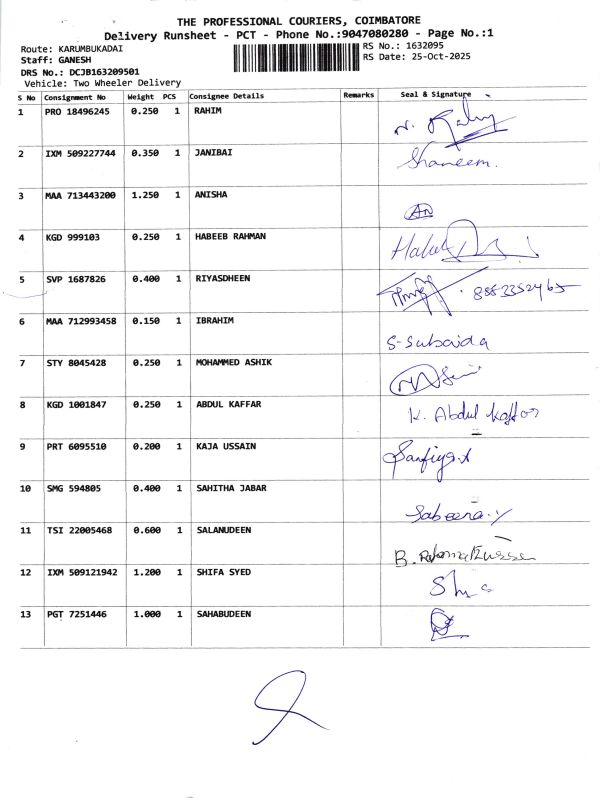 THE PROFESSIONAL COURIERS, COIMBATORE
Delivery Runsheet - PCT - Phone No.:9047080280 - Page No.:1
Route: KARUMBUKADAI
RS No.: 1632095
Staff: GANESH
RS Date: 25-Oct-2025
DRS No.: DCJB163209501
Vehicle: Two Wheeler Delivery
S No Consignment No Weight PCS Consignee Details Remarks Seal & Signature
1 PRO 18496245 0.250 1 RAHIM
2 IXM 509227744 0.350 1 JANIBAI Shaneem.
3 MAA 713443200 1.250 1 ANISHA AN
4 KGD 999103 0.250 1 HABEEB RAHMAN
5 SVP 1687826 0.400 1 RIYASDHEEN
6 MAA 712993458 0.150 1 IBRAHIM S-Subaida
7 STY 8045428 0.250 1 MOHAMMED ASHIK
8 KGD 1001847 0.250 1 ABDUL KAFFAR K. Abdul Kaffoor
9 PRT 6095510 0.200 1 KAJA USSAIN
10 SMG 594805 0.400 1 SAHITHA JABAR Sabeena.Y
11 TSI 22005468 0.600 1 SALANUDEEN
12 IXM 509121942 1.200 1 SHIFA SYED
13 PGT 7251446 1.000 1 SAHABUDEEN